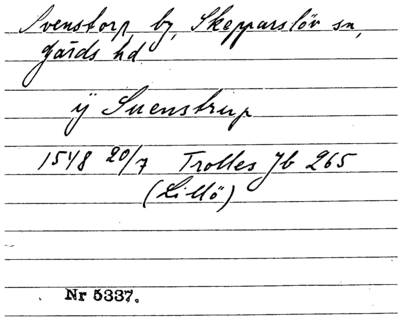 Svenstorp by, Skepparslöv sn,
Gärds hd
ÿ Suenstrup
1548 20/7 Trolles Jb 265
(Lillö)
Nr 5337.